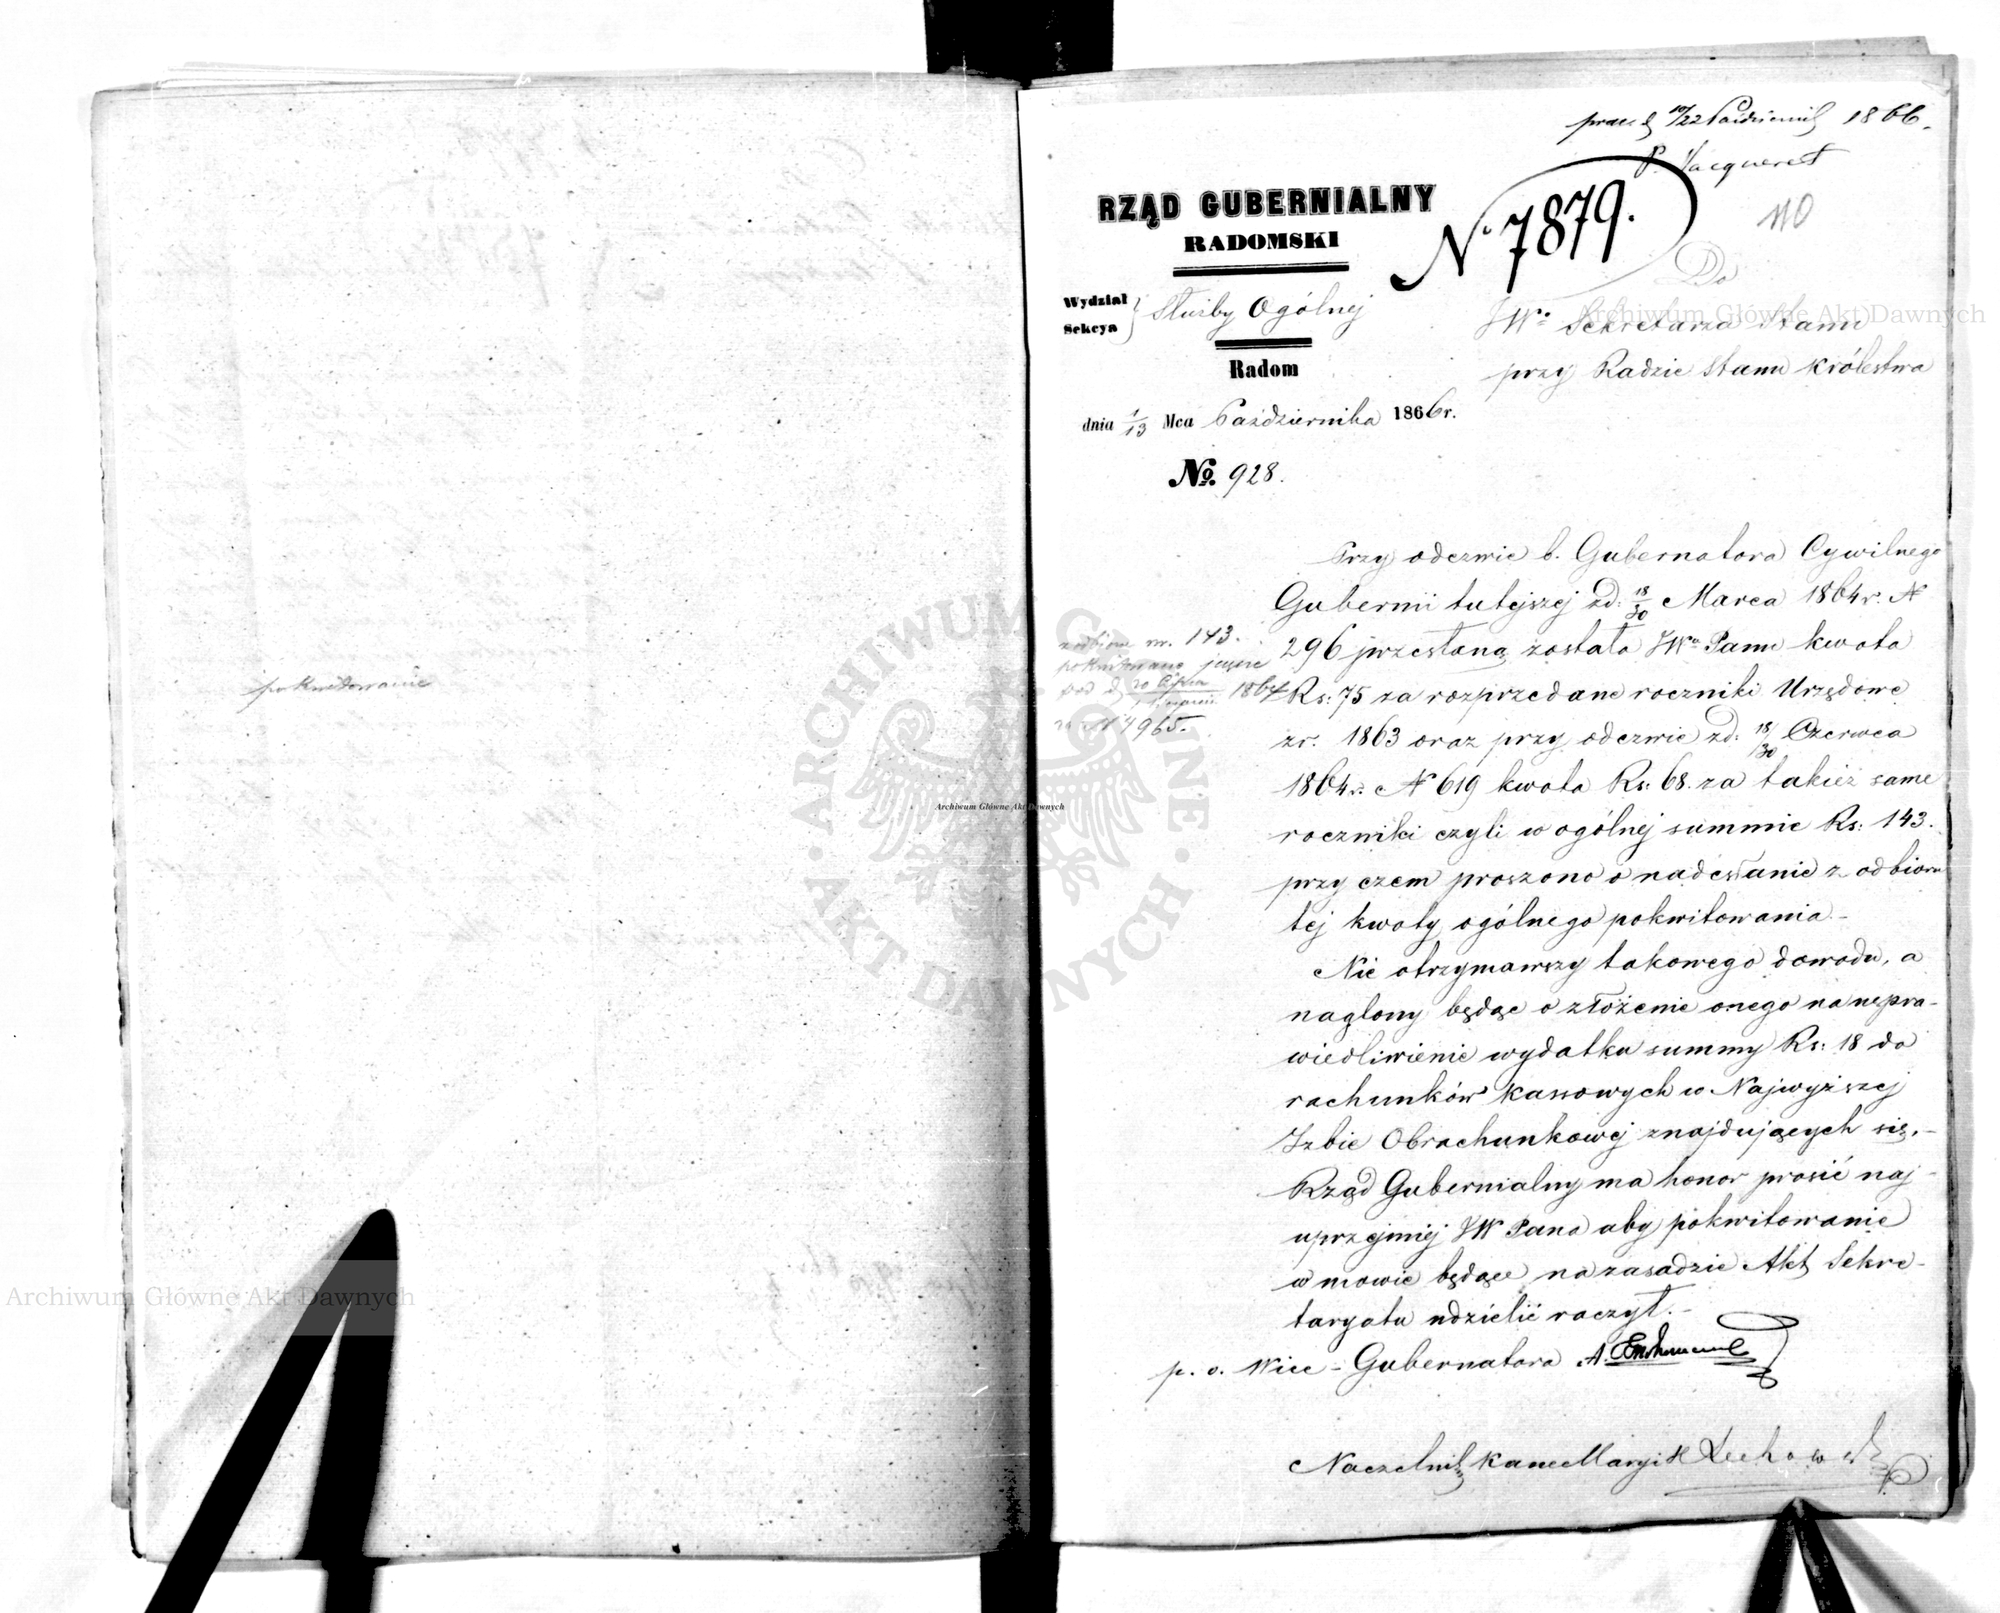 pokwitowanie
prez d 10/22 Października 1866.
P. Jacqueret
RZĄD GUBERNIALNY
RADOMSKI
N. 7879.
110
Do
Wydział
Sekcya
Służby Ogólnej
JWo Sekretarza Stanu
przy Radzie Stanu Królestwa
Radom
dnia 1/13 Mca Października 1866r.
No. 928.
Przy odezwie b. Gubernatora Cywilnego
Gubernii tutejszej zd: 18/30 Marca 1864r. N
296 przesłaną została JWo Panu kwota
Rs: 75 za rozprzedane roczniki Urzędowe
zr. 1863 oraz przy odezwie zd: 18/30 Czerwca
1864r. N 619 kwota Rs: 68. za takież same
roczniki czyli w ogólnej summie Rs: 143.
przy czem proszono o nadesłanie z odbioru
tej kwoty ogólnego pokwitowania.-
Nie otrzymawszy takowego dowodu, a
naglony będąc o złożenie onego na uspra-
wiedliwienie wydatku summy Rs: 18 do
rachunków kassowych w Najwyższej
Izbie Obrachunkowej znajdujących się,-
Rząd Gubernialny ma honor prosić naj-
uprzejmiej JW Pana aby pokwitowanie
w mowie będące na zasadzie Akt Sekre-
taryatu udzielić raczył.-
p. o. Wice-Gubernatora A.
Naczelnik Kancellaryi
nr. 143.
pokwitowano jeszcze
pod d 20 Lipca 1864
N 4965.
Archiwum Główne Akt Dawnych
ARCHIWUM GŁÓWNE · AKT DAWNYCH ·
Archiwum Główne Akt Dawnych
Archiwum Główne Akt Dawnych